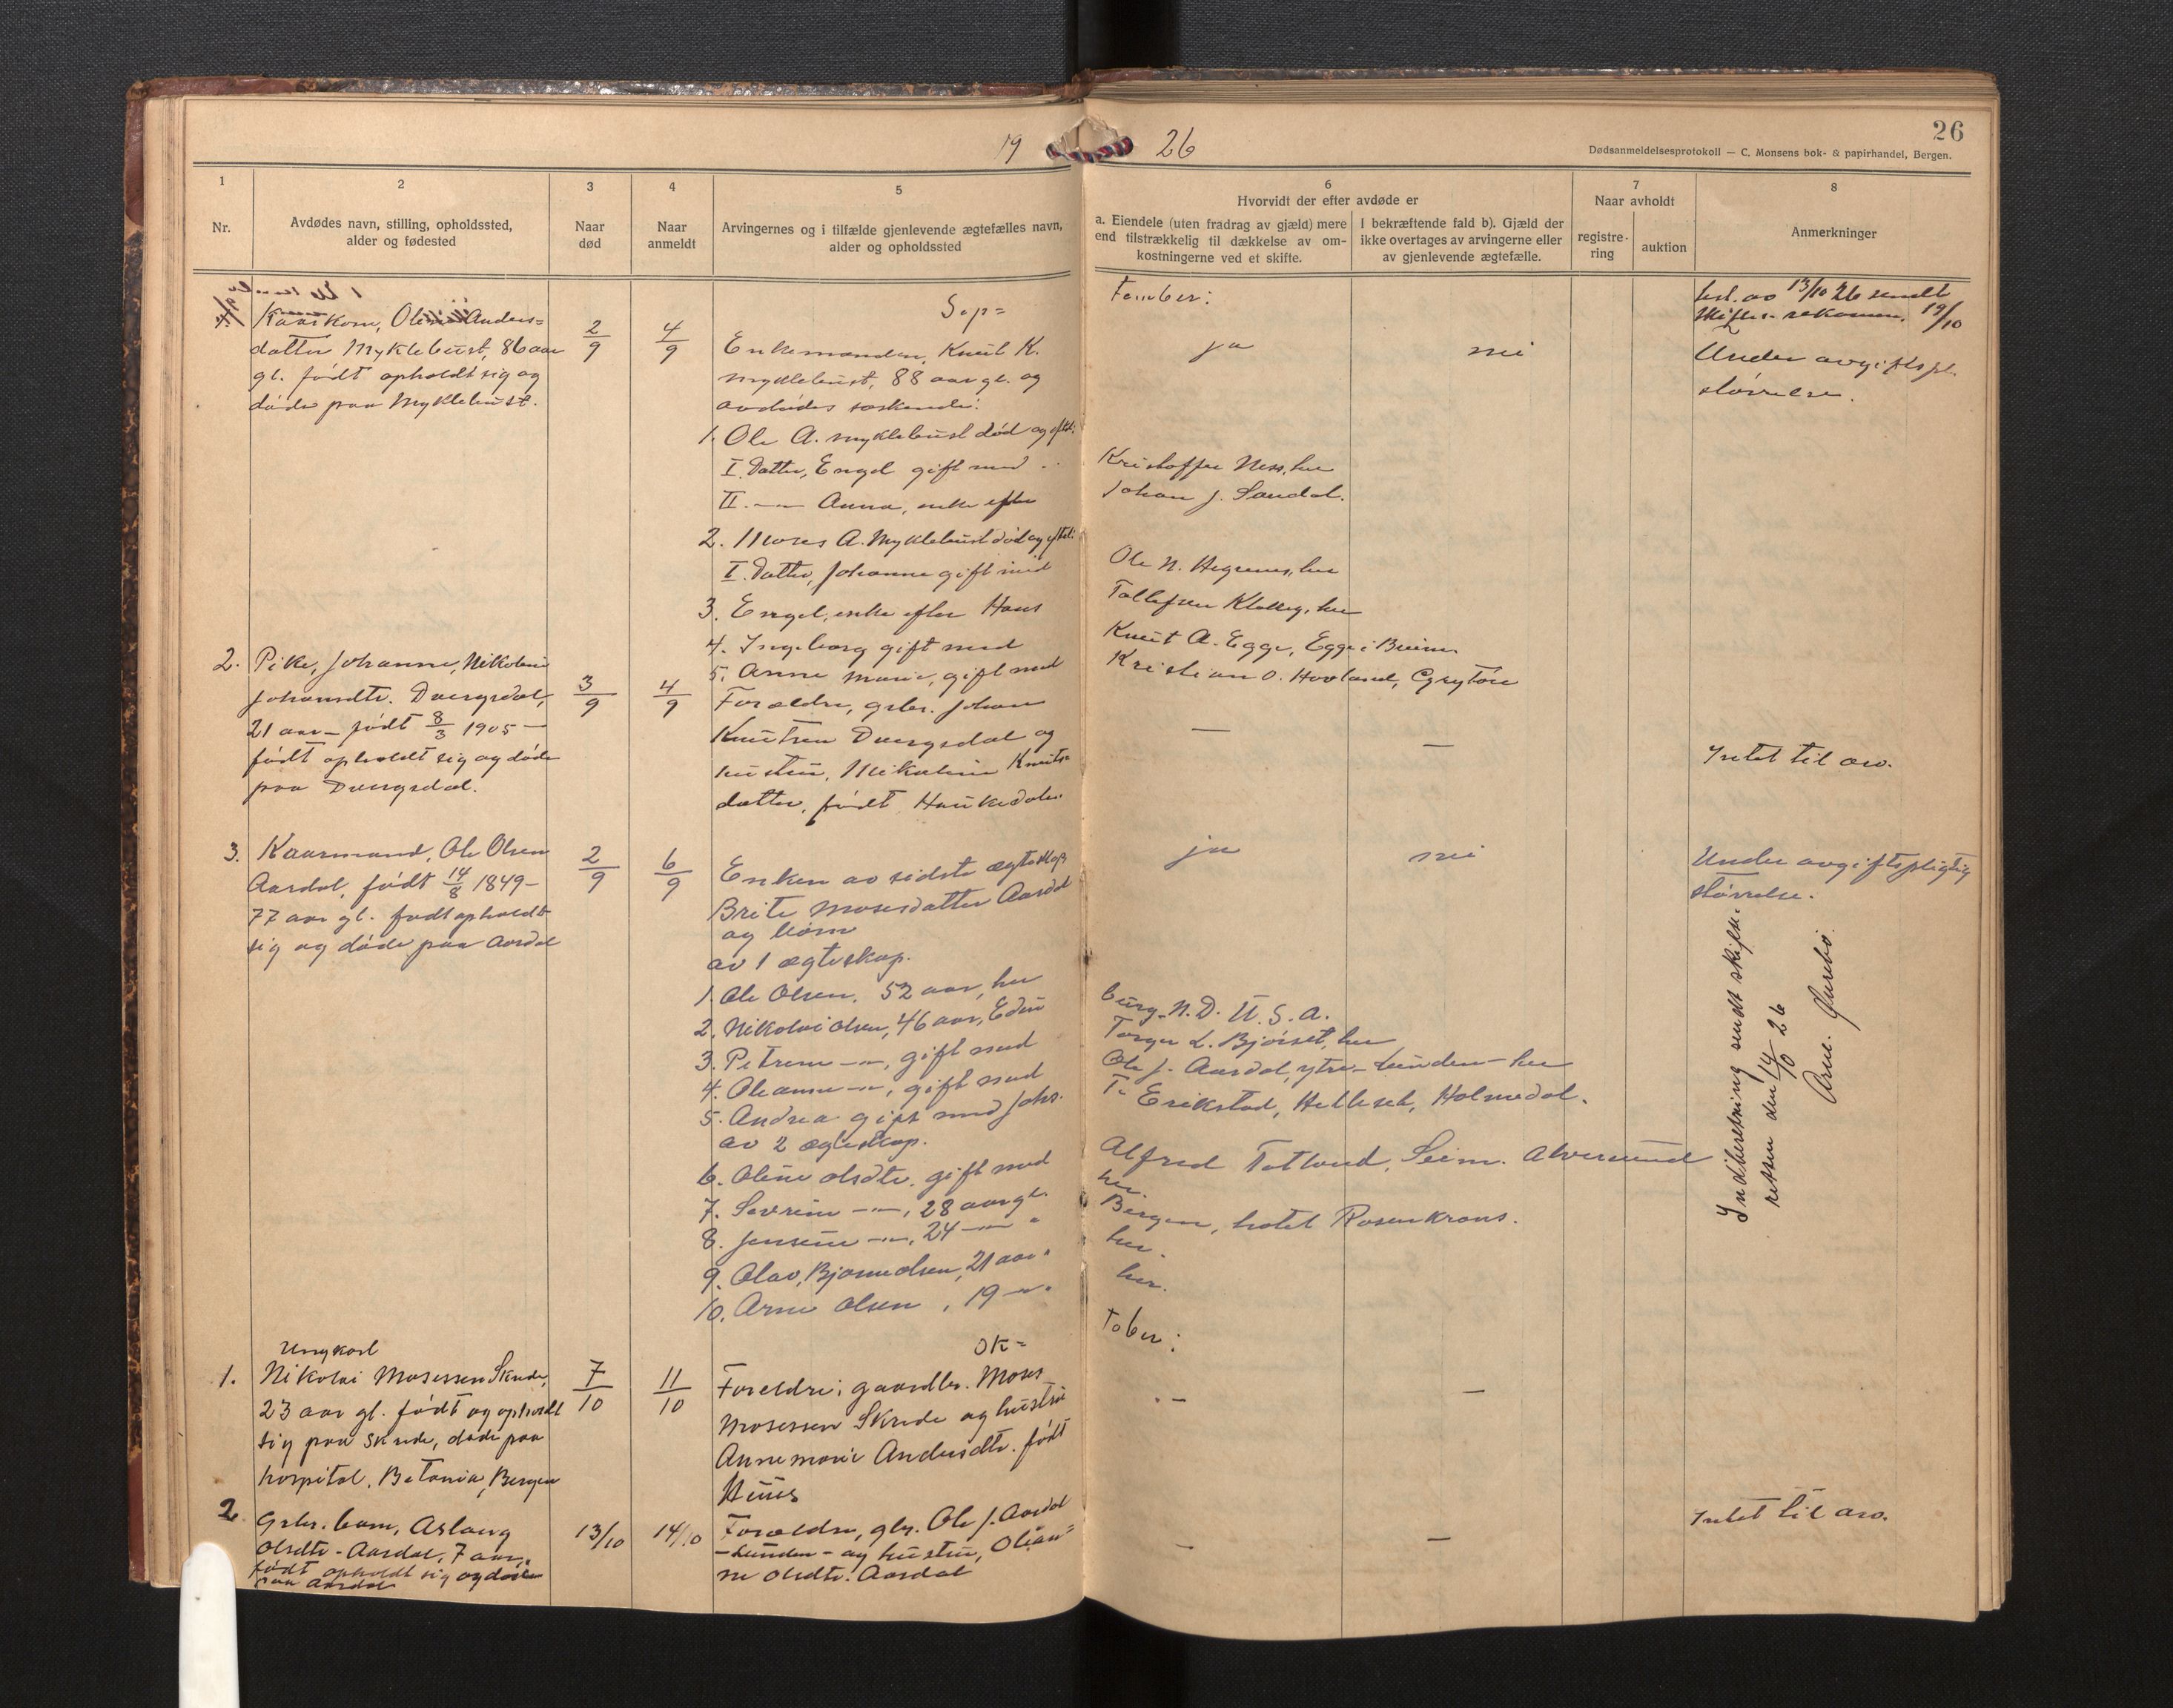 26
19 26
Dødsanmeldelsesprotokoll — C. Monsens bok- & papirhandel, Bergen.
1
Nr.
2
Avdødes navn, stilling, opholdssted,
alder og fødested
3
Naar
død
4
Naar
anmeldt
5
Arvingernes og i tilfælde gjenlevende ægtefælles navn,
alder og opholdssted
6
Hvorvidt der efter avdøde er
a. Eiendele (uten fradrag av gjæld) mere
end tilstrækkelig til dækkelse av om-
kostningerne ved et skifte.
I bekræftende fald b). Gjæld der
ikke overtages av arvingerne eller
av gjenlevende ægtefælle.
7
Naar avholdt
registre-
ring
auktion
8
Anmerkninger
Sep=
tember:
Kaarkom, Oline Anders=
datter Myklebust, 86 aar
gl. født opholdt sig og
døde paa Myklebust.
2/9
4/9
Enkemanden, Knut K.
Myklebust, 88 aar gl. og
avdødes søskende:
1. Ole A. Myklebust død og efterl:
I. Datter, Engel gift med
II. —"— Anna, enke efter
2. Moses A. Myklebust død og efterl:
I. Datter, Johanne gift med
3. Engel, enke efter Hans
4. Ingeborg gift med
5. Anne Marie, gift med
ja
nei
Kristoffer Ness, her
Johan J. Sandal.
Ole N. Hegrenes, her
Tollefsen Klakeg, her
Knut A. Egge, Egge i Breim
Kristian O. Hovland, Grytøre
av 13/10 26 sendt
19/10
Under avgiftspl.
størrelse.
2. Pike, Johanne, Nikoline
Johansdtr. Dvergsdal,
21 aar — født 8/3 1905 —
født opholdt sig og døde
paa Dvergsdal.
3/9
4/9
Forældre, grbr. Johan
Knutsen Dvergsdal og
hustru, Nikoline Knuts=
datter, født Haukedalen.
—
—
Intet til arv.
3. Kaarmand, Ole Olsen
Aardal, født 14/8 1849 —
77 aar gl. født opholdt
sig og døde paa Aardal
2/9
6/9
Enken av sidste ægteskap
Brite Mosesdatter Aardal
og børn
av 1 ægteskap.
1. Ole Olsen, 52 aar, her
2. Nikolai Olsen, 46 aar, Edin
3. Petrine —"—, gift med
4. Oleanne —"—, gift med
5. Andrea gift med Johs.
av 2 ægteskap.
6. Oline Olsdtr. gift med
7. Sevrine —"—, 28 aar gl.
8. Jensine —"—, 24 —"— "
9. Olav, Bjarne Olsen, 21 aar "
10. Arne Olsen, 19 —"— "
ja
nei
burg. N.D. U.S.A.
Torger L. Bjørset, her
Ole J. Aardal, ytre - Lunden — her
T. Erikstad, Helleset, Holmedal.
Alfred Totland, Seim. Alversund
her.
Bergen, hotel Rosenkrans.
her.
her.
Under avgiftspligtig
størrelse.
Indberetning sendt skifte-
retten den 14/10 26
Arne Øvrebø.
Ok=
tober:
Ungkarl
1. Nikolai Mosessen Skrede,
23 aar gl. født og opholdt
sig paa Skrede, døde paa
hospital, Betania, Bergen
7/10
11/10
Foreldre; gaardbr. Moses
Mosessen Skrede og hustru
Annemarie Andersdtr. født
Huus
—
—
2. Grbr. barn, Aslaug
Olsdtr - Aardal, 7 aar,
født opholdt sig og døde
paa Aardal
13/10
14/10
Forældre, gbr. Ole J. Aardal
- Lunden - og hustru, Olean=
ne Olsdtr. Aardal
—
—
Intet til arv.